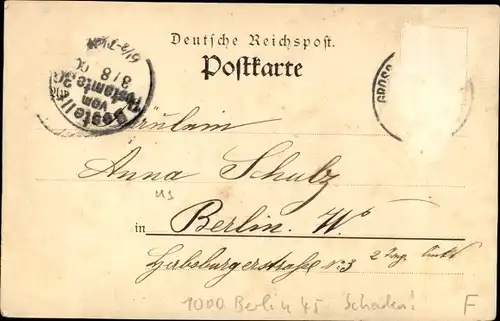 Deutsche Reichspost.
Postkarte
Bestellt
vom
Postamte
8/8
GROSS
Fräulein
Anna Schulz
in Berlin. W.
Habsburgerstraße No 3 2 Trp. links
1000 Berlin 45 Schaden!
F